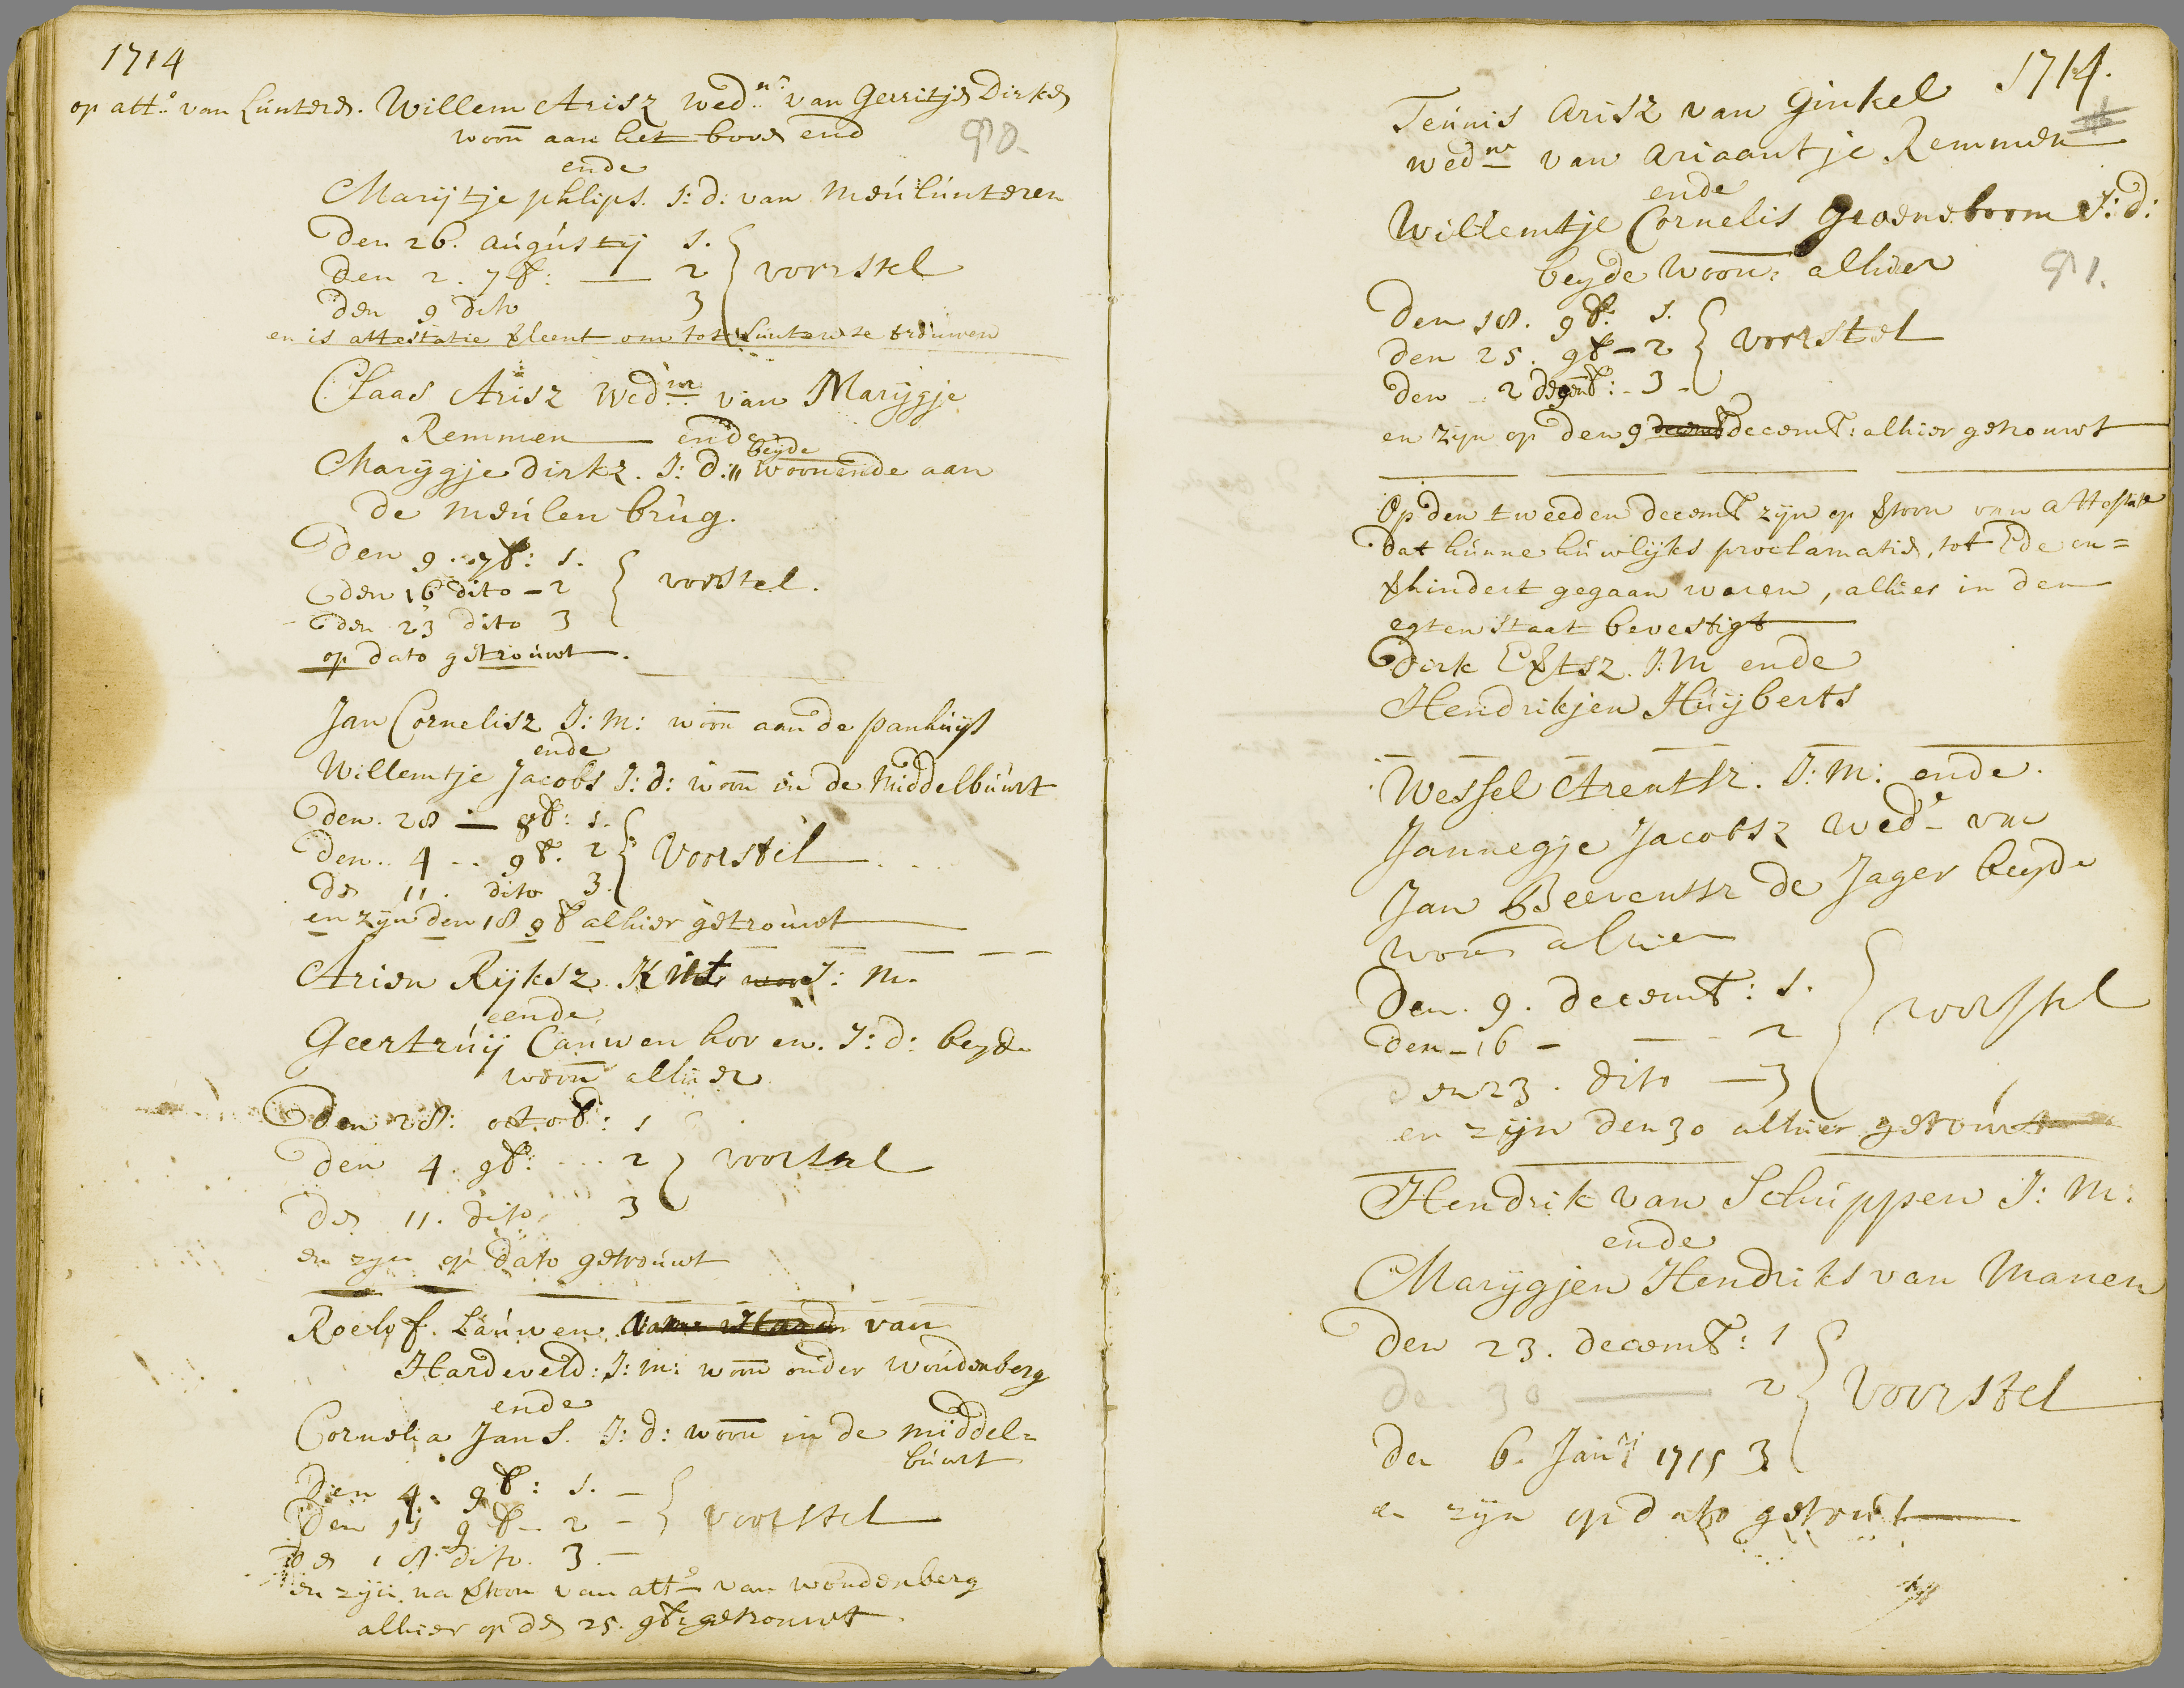 1714
op att.o van Lunteren. Willem Arisz wed.nr van Gerritje Dirks
woon aan het boven end
90.
ende
Marijtje phlips. J: d: van Meulunteren
Den 26. augustij 1.
Den 2. 7b: — 2 } voorstel
den 9 dito 3
en is attestatie verleent om tot Lunteren te trouwen
Claas Arisz Wed.nr van Marijgje
Remmen — ende
beyde
Marijgje dirkz. J: d: woonende aan
de meulen brug.
den 9. 7b: 1.
den 16 dito – 2 } voorstel.
den 23 dito 3
op dato getrouwt.
Jan Cornelisz J: M: woon aan de panhuijs
ende
Willemtje Jacobs J: d: woon in de Middelbuurt
den. 28 — 8b: 1.
den.. 4 .. 9b. 2 } Voorstel
de 11. dito 3.
en zijn den 18 9b alhier getrouwt
Arien Rijksz. Kist J: M.
ende
Geertruij Cauwenhoven. J: d: beyde
woon alhier
den 28: octob: 1
den 4. 9b: ... 2 } voorstel
de 11. dito 3
en zijn op dato getrouwt
Roelof. Lauwen van
Hardeveld: J: m: woon onder woudenberg
ende
Cornelia Jans. J: d: woon in de middel=
buurt
Den 4. 9b: 1. –
Den 11 9b – 2 – } voorstel
de 18. dito. 3. –
en zijn na vertoon van att.o van woudenberg
alhier op de 25. 9b: getrouwt.
1714.
Teunis Arisz van Ginkel
wed.nr van Ariaantje Remmen
ende
Willemtje Cornelis Groeneboom J: d:
beyde woon: alhier
91.
Den 18. 9b: 1.
den 25. 9b – 2 } voorstel
den 2 decemb: – 3 –
en zijn op den 9 decemb: alhier getrouwt
Op den tweeden decemb zijn op vertoon van attestatie
dat hunne huwlijks proclamatie, tot Ede on=
verhindert gegaan waren, alhier in den
egten staat bevestigt
Dirk Evertsz. J: M ende
Hendrikjen Huijberts
Wessel Arentsz. J: M: ende.
Jannegje Jacobsz wed.e van
Jan Beerentsz de Jager beyde
woon alhier
Den. 9. decemb: 1.
den – 16 – — – 2 } voorstel
den 23. dito — 3
en zijn den 30 alhier getrouwt
Hendrik van Schuppen J: M:
ende
Marijgjen Hendriks van Manen
Den 23. decemb: 1
de 30 — 2 } Voorstel
den 6. Jan.rij 1715 3
en zijn op dato getrouwt